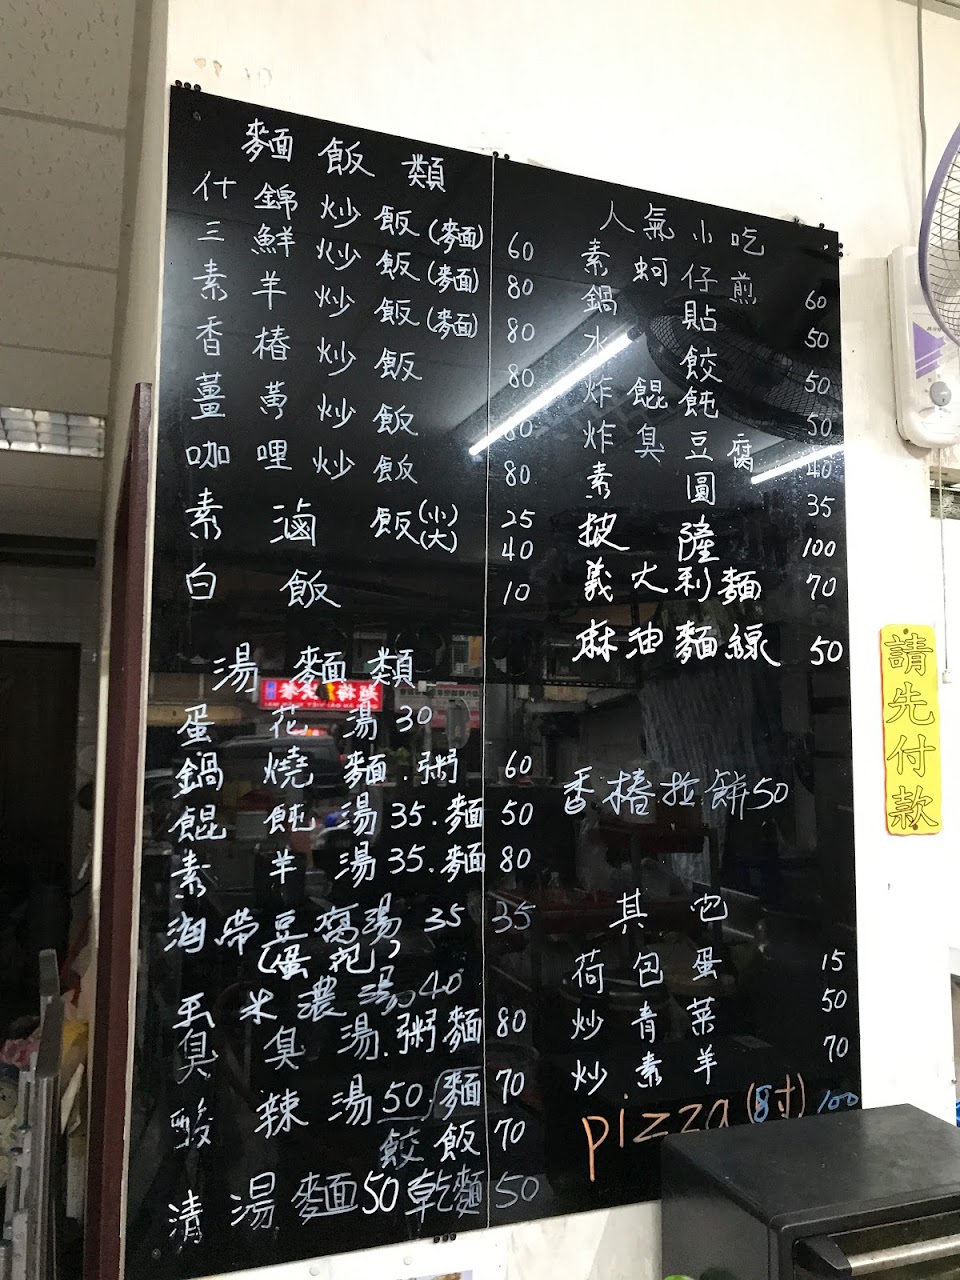 麵飯類
什錦炒飯(麵) 60
三鮮炒飯(麵) 80
素羊炒飯(麵) 80
香椿炒飯 80
薑黃炒飯 80
咖哩炒飯 80
素滷飯(小) 25
(大) 40
白飯 10
湯麵類
蛋花湯 30
鍋燒麵.粥 60
餛飩湯 35.麵 50
素羊湯 35.麵 80
海帶豆腐湯 35 35
(蛋花)
玉米濃湯 40
臭臭湯.粥麵 80
酸辣湯 50.麵 70
餃飯 70
清湯麵50乾麵50
人氣小吃
素蚵仔煎 60
鍋貼 50
水餃 50
炸餛飩 50
炸臭豆腐 40
素圓 35
披薩 100
義大利麵 70
麻油麵線 50
香椿拉餅50
其它
荷包蛋 15
炒青菜 50
炒素羊 70
pizza(8寸) 100
請先付款